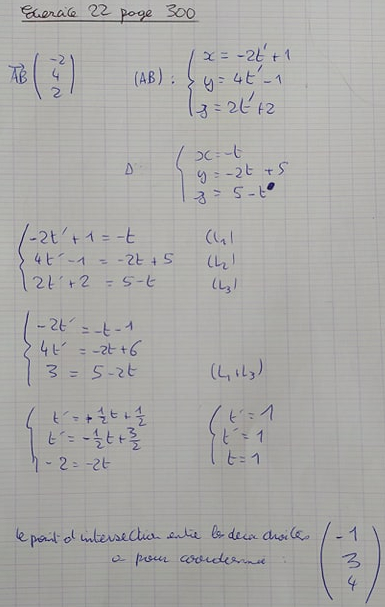 Exercice 22 page 300
AB (-2 4 2) (AB) : { x = -2t' + 1
y = 4t' - 1
z = 2t' + 2
Δ { x = -t
y = -2t + 5
z = 5 - t
{ -2t' + 1 = -t (L1)
4t' - 1 = -2t + 5 (L2)
2t' + 2 = 5 - t (L3)
{ -2t' = -t - 1
4t' = -2t + 6
3 = 5 - 2t (L1+L3)
{ t' = +1/2 t + 1/2 { t' = 1
t' = -1/2 t + 3/2 t' = 1
-2 = -2t t = 1
le point d'intersection entre les deux droites
a pour coordonnées : (-1 3 4)